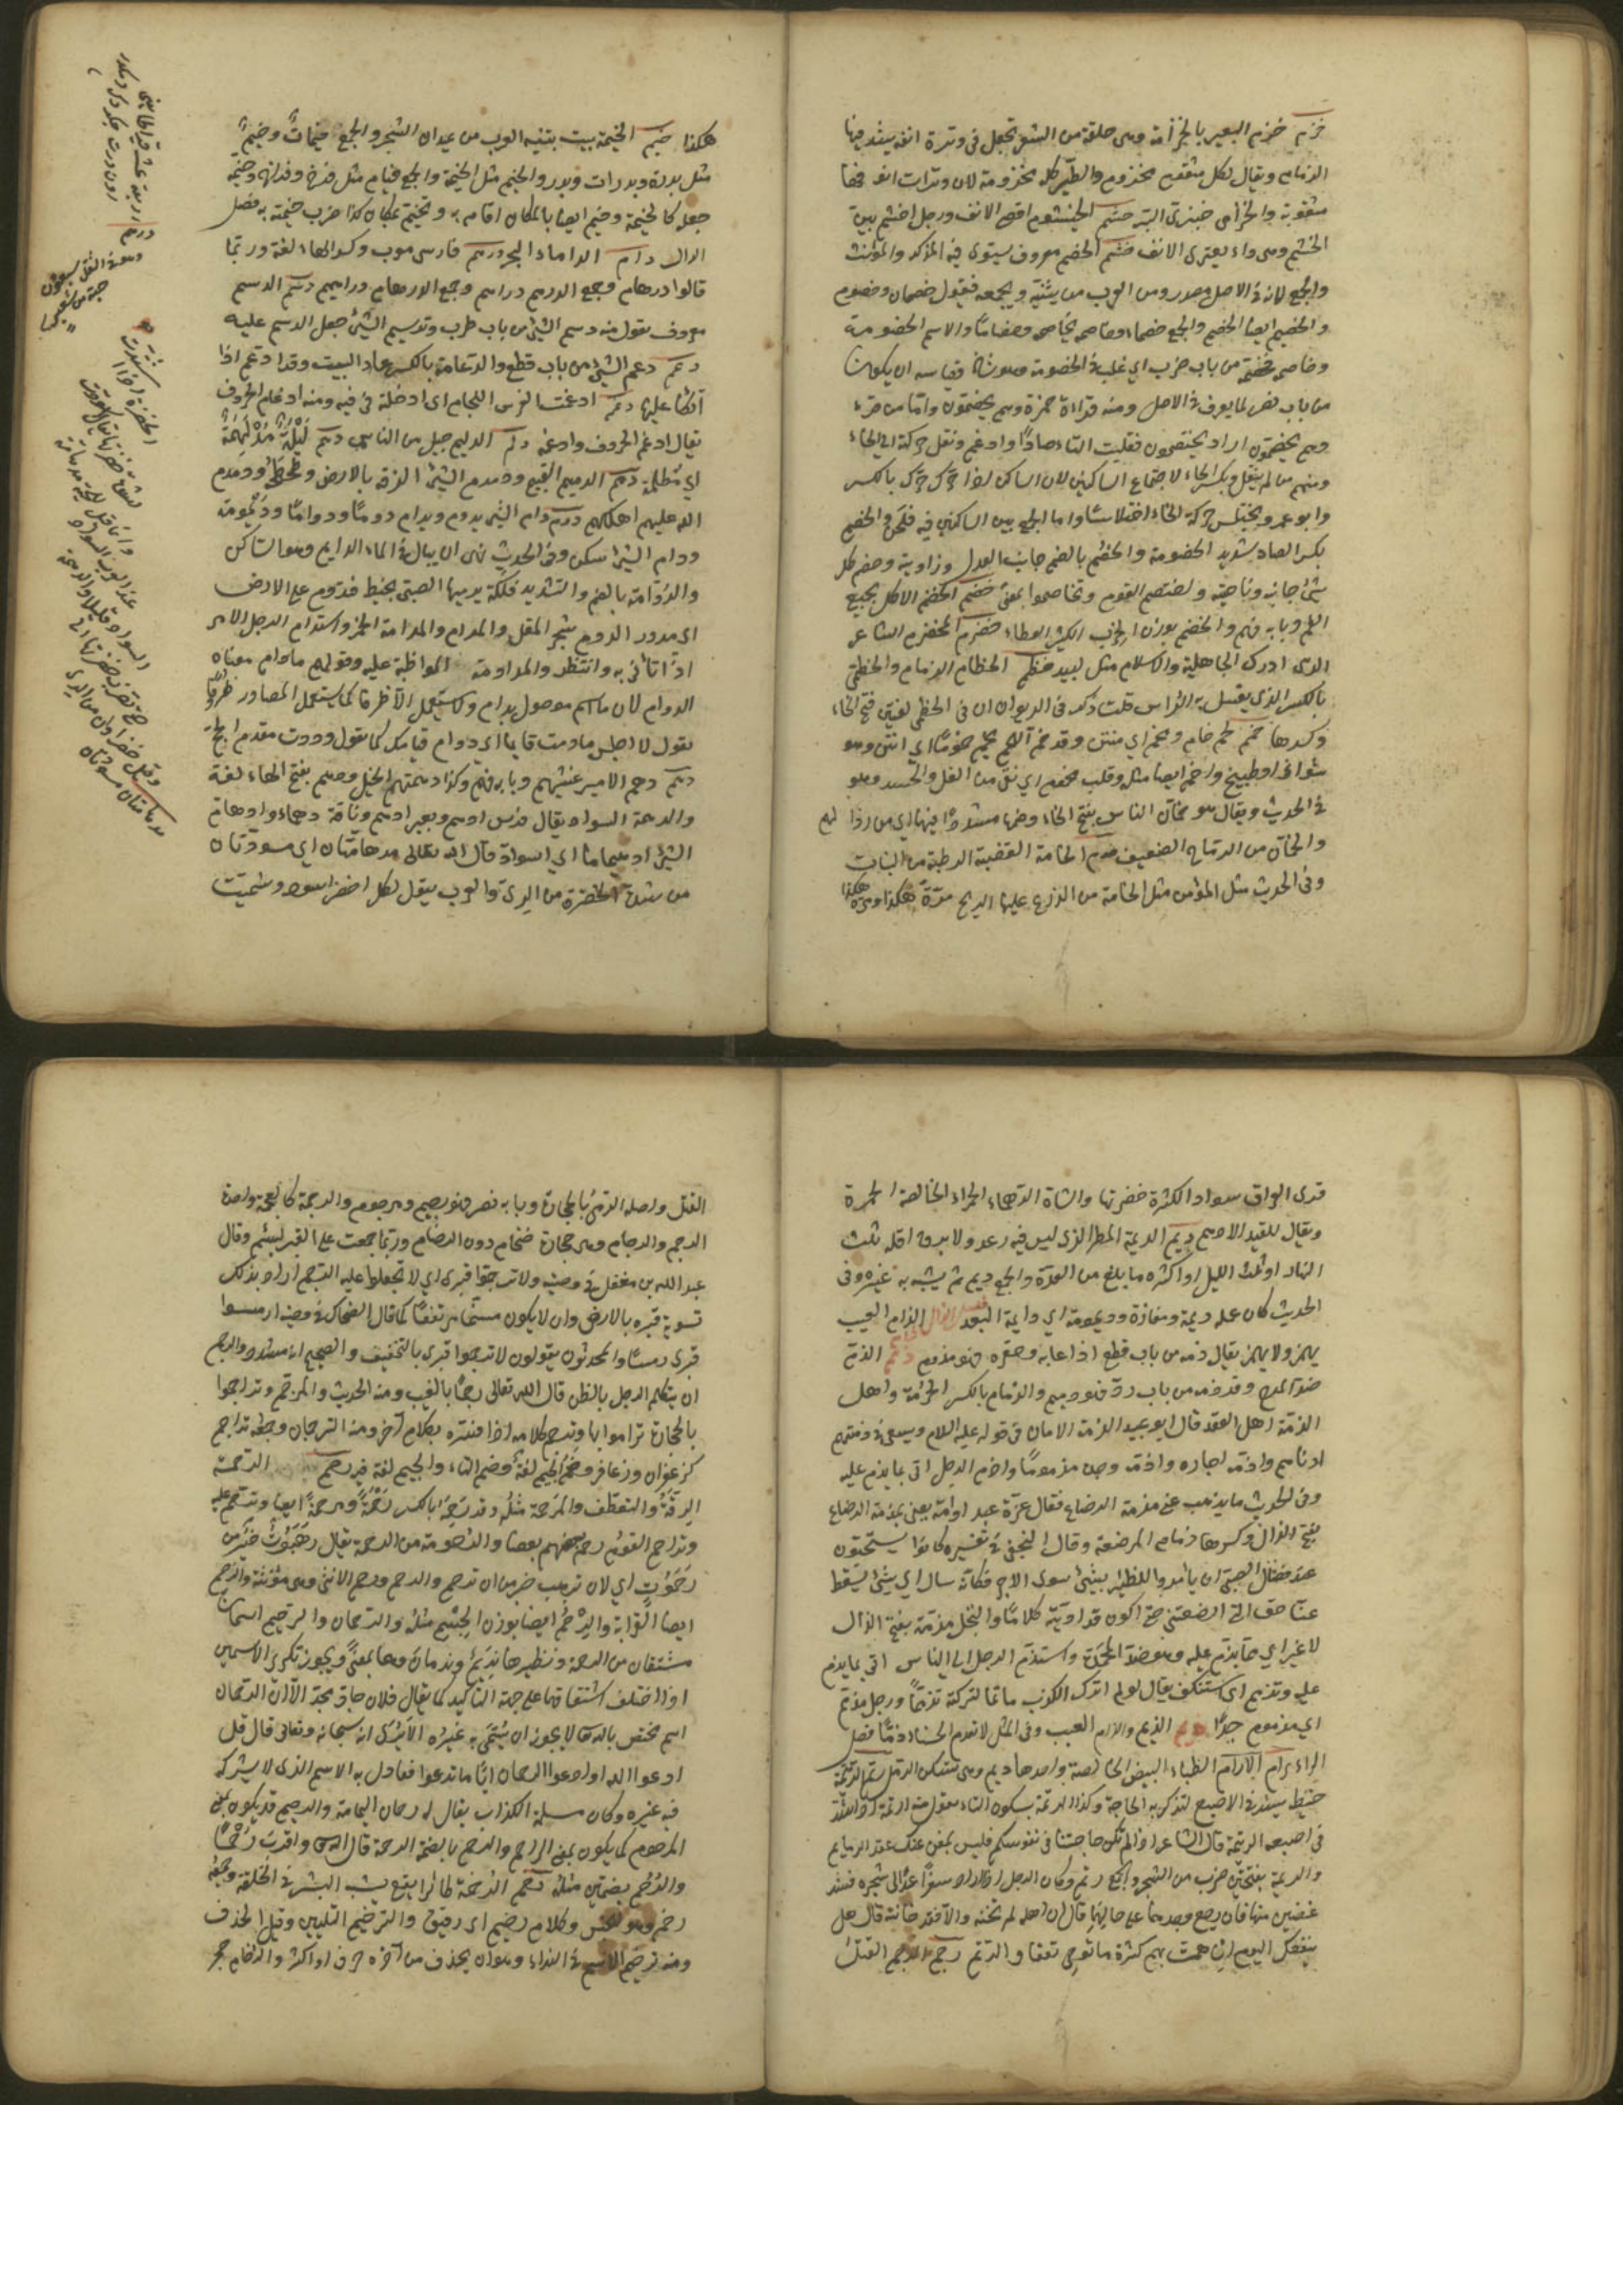 خزم خزم البعير بالخزامة وهى حلقة من الشعر تجعل فى وترة انفه يشد فيها
الزمام ويقال لكل مثقوب مخزوم والطير كلها مخزومة لان وترات انفها
مثقوبة والخزامى خيزى البر خشم الخيشوم اقصى الانف ورجل اخشم بين
الخشم وهو داء يعترى الانف خصم الخصم معروف يستوى فيه المذكر والمؤنث
والجمع لانه فى الاصل مصدر ومن العرب من يثنيه ويجمعه فيقول خصمان وخصوم
والخصيم ايضا الخصم والجمع خصماء وخاصمه مخاصمة وخصاما والاسم الخصومة
وخاصمه فخصمه من باب ضرب اى غلبه فى الخصومة وهو شاذ وقياسه ان يكون
من باب نصر لما يعرف فى الاصل ومنه قراءة حمزة وهم يخصمون واما من قرء
وهم يخصمون اراد يختصمون فقلبت التاء صادا وادغم ونقل حركته الى الخاء
ومنهم من لم ينقل ويكسر الخاء لاجتماع الساكنين لان الساكن اذا حرك حرك بالكسر
وابو عمرو يختلس حركة الخاء اختلاسا واما الجمع بين الساكنين فيه فلحن والخصم
بكسر الصاد شديد الخصومة والخصم بالضم جانب العدل وزاويته وخصم كل
شئ جانبه وناحيته واختصم القوم وتخاصموا بمعنى خضم الخضم الاكل بجميع
الفم وبابه فهم والخضم بوزن الهجف الكثير العطاء خضرم المخضرم الشاعر
الذى ادرك الجاهلية والاسلام مثل لبيد خطم الخطام الزمام والخطمى
بالكسر الذى يغسل به الراس قلت ذكر فى الديوان ان فى الخطمى لغتين فتح الخاء
وكسرها خمم لحم خام ومخم اى منتن وقد خم اللحم يخم خموما اى انتن وهو
شواء او طبيخ واخم ايضا مثله وقلب مخموم اى نقى من الغل والحسد وهو
فى الحديث ويقال هو من خمان الناس بفتح الخاء وضمها مشددا فيهما اى من رذالهم
والخمان من الرماح الضعيف خوم الخامة الغضة الرطبة من النبات
وفى الحديث مثل المؤمن مثل الخامة من الزرع تميلها الريح مرة هكذا ومرة هكذا
هكذا خيم الخيمة بيت تبنيه العرب من عيدان الشجر والجمع خيمات وخيم
مثل بدرة وبدرات وبدر والخيم مثل الخيمة والجمع خيام مثل فرخ وفراخ وخيمه
جعله كالخيمة وخيم ايضا بالمكان اقام به وتخيم بمكان كذا ضرب خيمته به فصل
الدال دام الداماء البحر درهم فارسى معرب وكسر الهاء لغة وربما
قالوا درهام وجمع الدرهم دراهم وجمع الدرهام دراهيم دسم الدسم
معروف تقول منه دسم الشئ من باب طرب وتدسيم الشئ جعل الدسم عليه
دعم دعم الشئ من باب قطع والدعامة بالكسر عماد البيت وقد ادعم اذا
اتكأ عليها دغم ادغمت الفرس اللجام اى ادخلته فى فيه ومنه ادغام الحروف
يقال ادغم الحروف وادغمه دلم الديلم جيل من الناس دلهم ليلة مدلهمة
اى مظلمة دمم الدميم القبيح ودمدم الشئ الزقه بالارض وطحطحه ودمدم
الله عليهم اهلكهم دوم دام الشئ يدوم ويدام دوما ودواما وديمومة
ودام الشئ سكن وفى الحديث نهى ان يبال فى الماء الدايم وهو الساكن
والدوامة بالضم والتشديد فلكة يرميها الصبى بخيط فتدوم على الارض
اى تدور الدوم شجر المقل والمدام والمدامة الخمر واستدام الرجل الامر
اذا تأنى به وانتظر والمداومة المواظبة عليه وقولهم ما دام معناه
الدوام لان ما اسم موصول بدام ولا يستعمل الا ظرفا كما يستعمل المصادر ظرفا
تقول لا اجلس ما دمت قايما اى دوام قيامك كما تقول وردت مقدم الحاج
دهم دهم الامير غشيهم وبابه فهم وكذا دهمتهم الخيل ودهم بفتح الهاء لغة
والدهمة السواد يقال فرس ادهم وبعير ادهم وناقة دهماء وادهام
الشئ ادهيماما اى اسواد قال الله تعالى مدهامتان اى سوداوان
من شدة الخضرة من الرى والعرب يقول لكل اخضر اسود وسميت
قرى العراق سوادا لكثرة خضرتها والشاة الدهماء الحمراء الخالصة الحمرة
ويقال للقيد الادهم ديم الديمة المطر الذى ليس فيه رعد ولا برق اقله ثلث
النهار او ثلث الليل او اكثره ما بلغ من العدة والجمع ديم ثم يشبه به غيره وفى
الحديث كان عمله ديمة ومفازة ديمومة اى دايمة البعد فصل الذال الذام العيب
يهمز ولا يهمز يقال ذأمه من باب قطع اذا عابه وحقره فهو مذؤم ذمم الذم
ضد المدح وقد ذمه من باب رد فهو ذميم والذمام بالكسر الحرمة واهل
الذمة اهل العقد قال ابو عبيد الذمة الامان فى قوله عليه السلام ويسعى بذمتهم
ادناهم واذمه اجاره واذمه وجده مذموما واذم الرجل اتى بما يذم عليه
وفى الحديث ما يذهب عنى مذمة الرضاع فقال غرة عبد او امة يعنى بمذمة الرضاع
بفتح الذال وكسرها ذمام المرضعة وقال النخعى فى تفسيره كانوا يستحبون
عند فصال الصبى ان يأمروا للظئر بشئ سوى الاجر فكأنه سأل اى شئ يسقط
عنى حق التى ارضعتنى حتى اكون قد اديته كاملا والبخل مذمة بفتح الذال
لا غير اى مما يذم عليه وهو ضد المحمدة واستذم الرجل الى الناس اتى بما يذم
عليه وتذمم اى استنكف يقال لو لم اترك الكذب تاثما لتركته تذمما ورجل مذمم
اى مذموم جدا ذيم الذيم والذام العيب وفى المثل لا تعدم الحسناء ذاما فصل
الراء رام الآرام الظباء البيض الخالصة واحدها ريم وهى تسكن الرمل رتم الرتيمة
خيط يشد فى الاصبع لتذكر به الحاجة وكذا الرتمة بسكون التاء تقول منه ارتمه اذا شد
فى اصبعه الرتيمة قال الشاعر اذا لم تكن حاجتنا فى نفوسكم فليس بمغن عنك عقد الرتايم
والرتمة بفتحتين ضرب من الشجر والجمع رتم وكان الرجل اذا اراد سفرا عمد الى شجرة فشد
غصنين منها فان رجع ووجدهما على حالهما قال ان اهله لم تخنه والا فقد خانته قال هل
ينفعنك اليوم ان همت بهم كثرة ما توصى وتعقاد الرتم رجم الرجم القتل
القتل واصله الرمى بالحجارة وبابه نصر فهو رجيم ومرجوم والرجمة كالعجمة واحدة
الرجم والرجام وهى حجارة ضخام دون الرضام وربما جمعت على القبر ليسنم وقال
عبد الله بن مغفل فى وصيته ولا ترجموا قبرى اى لا تجعلوا عليه الرجم اراد بذلك
تسوية قبره بالارض وان لا يكون مسنما مرتفعا كما قال الضحاك فى وصيته ارمسوا
قبرى رمسا والمحدثون يقولون لا ترجموا قبرى بالتخفيف والصحيح انه مشدد والرجم
ان يتكلم الرجل بالظن قال الله تعالى رجما بالغيب ومنه الحديث والمرجم وتراجموا
بالحجارة تراموا بها وترجم كلامه اذا فسره بكلام آخر ومنه الترجمان وجمعه تراجم
كزعفران وزعافر وضم الجيم لغة وضم التاء والجيم لغة فيه رحم الرحمة
الرقة والتعطف والمرحمة مثله وقد رحمه بالكسر رحمة ومرحمة ايضا وترحم عليه
وتراحم القوم رحم بعضهم بعضا والرحموت من الرحمة يقال رهبوت خير من
رحموت اى لان ترهب خير من ان ترحم والرحم رحم الانثى وهى مؤنثة والرحم
ايضا القرابة والرحم ايضا بوزن الجسم مثله والرحمان والرحيم اسمان
مشتقان من الرحمة ونظيرهما نديم وندمان وهما بمعنى ويجوز تكرير الاسمين
اذا اختلف اشتقاقهما على جهة التأكيد كما يقال فلان جاد مجد الا ان الرحمان
اسم مختص بالله لا يجوز ان يسمى به غيره الا يرى انه سبحانه وتعالى قال قل
ادعوا الله او ادعوا الرحمان ايا ما تدعوا فعادل به الاسم الذى لا يشركه
فيه غيره وكان مسيلمة الكذاب يقال له رحمان اليمامة والرحيم قد يكون بمعنى
المرحوم كما يكون بمعنى الراحم والرحم بالضم الرحمة قال الله واقرب رحما
والرحم بضمتين مثله رخم الرخمة طائر ابقع يشبه النسر فى الخلقة وجمعه
رخم وهو للجنس وكلام رخيم اى رقيق والترخيم التليين وقيل الحذف
ومنه ترخيم الاسم فى النداء وهو ان يحذف من آخره حرف او اكثر والرخام حجر